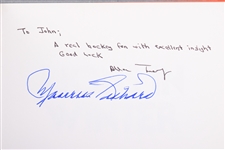 To John;
A real hockey fan with excellent insight
Good luck
Maurice Richard